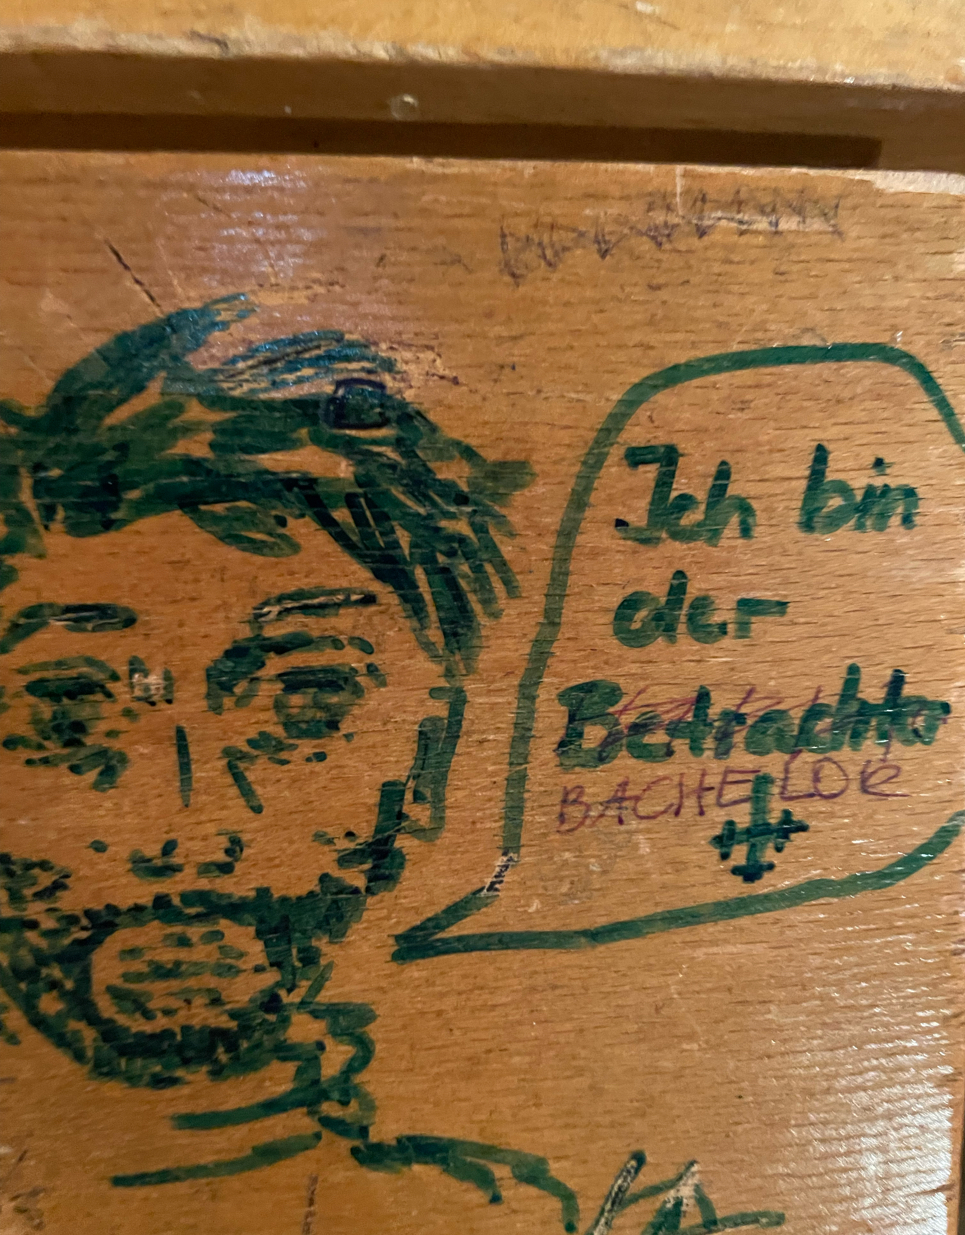 Ich bin
der
Betrachter
BACHELOR